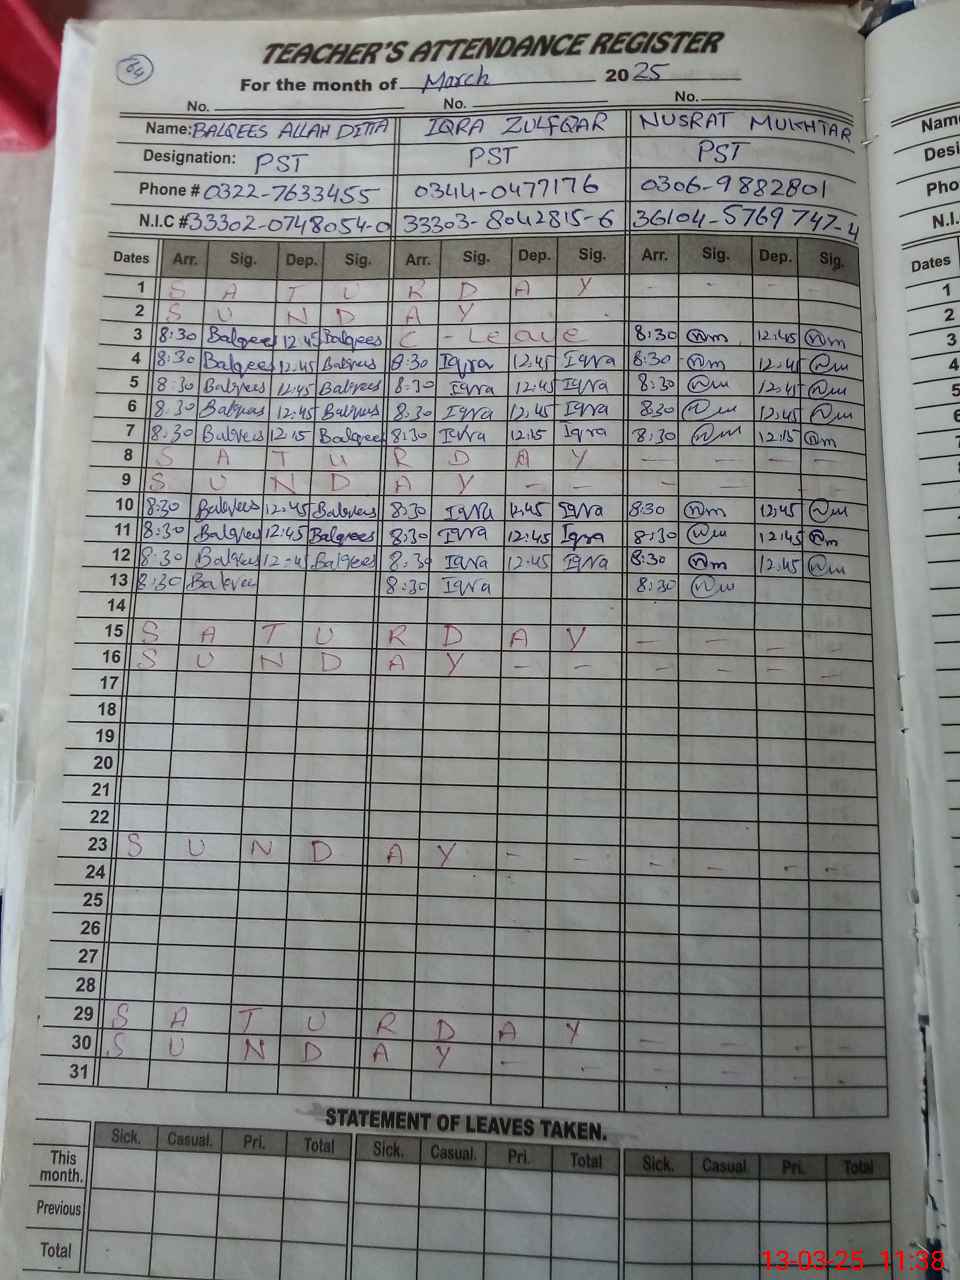 64
TEACHER'S ATTENDANCE REGISTER
For the month of March 2025
No. No. No.
Name: BALQEES ALLAH DITTA IQRA ZULFQAR NUSRAT MUKHTAR
Designation: PST PST PST
Phone # 0322-7633455 0344-0477176 0306-9882801
N.I.C # 33302-0748054-0 33303-8042815-6 36104-5769747-4
Dates Arr. Sig. Dep. Sig. Arr. Sig. Dep. Sig. Arr. Sig. Dep. Sig.
1 S A T U R D A Y - - - -
2 S U N D A Y
3 8:30 Balqees 12:45 Balqees C - Leave 8:30 Nm 12:45 Nm
4 8:30 Balqees 12:45 Balqees 8:30 Iqra 12:45 Iqra 8:30 Nm 12:45 Nm
5 8:30 Balqees 12:45 Balqees 8:30 Iqra 12:45 Iqra 8:30 Nm 12:45 Nm
6 8:30 Balqees 12:45 Balqees 8:30 Iqra 12:45 Iqra 8:30 Nm 12:45 Nm
7 8:30 Balqees 12:15 Balqees 8:30 Iqra 12:15 Iqra 8:30 Nm 12:15 Nm
8 S A T U R D A Y - - - -
9 S U N D A Y - - - - - -
10 8:30 Balqees 12:45 Balqees 8:30 Iqra 12:45 Iqra 8:30 Nm 12:45 Nm
11 8:30 Balqees 12:45 Balqees 8:30 Iqra 12:45 Iqra 8:30 Nm 12:45 Nm
12 8:30 Balqees 12-45 Balqees 8:30 Iqra 12:45 Iqra 8:30 Nm 12:45 Nm
13 8:30 Balqees 8:30 Iqra 8:30 Nm
14
15 S A T U R D A Y - - - -
16 S U N D A Y - - - - - -
17
18
19
20
21
22
23 S U N D A Y - - - - - -
24
25
26
27
28
29 S A T U R D A Y - - - -
30 S U N D A Y - - - - - -
31
STATEMENT OF LEAVES TAKEN.
Sick. Casual. Pri. Total Sick. Casual. Pri. Total Sick. Casual. Pri. Total
This month.
Previous
Total
Name
Desi
Pho
N.I.
Dates
1
2
3
4
5
6
7
13-03-25 11:38